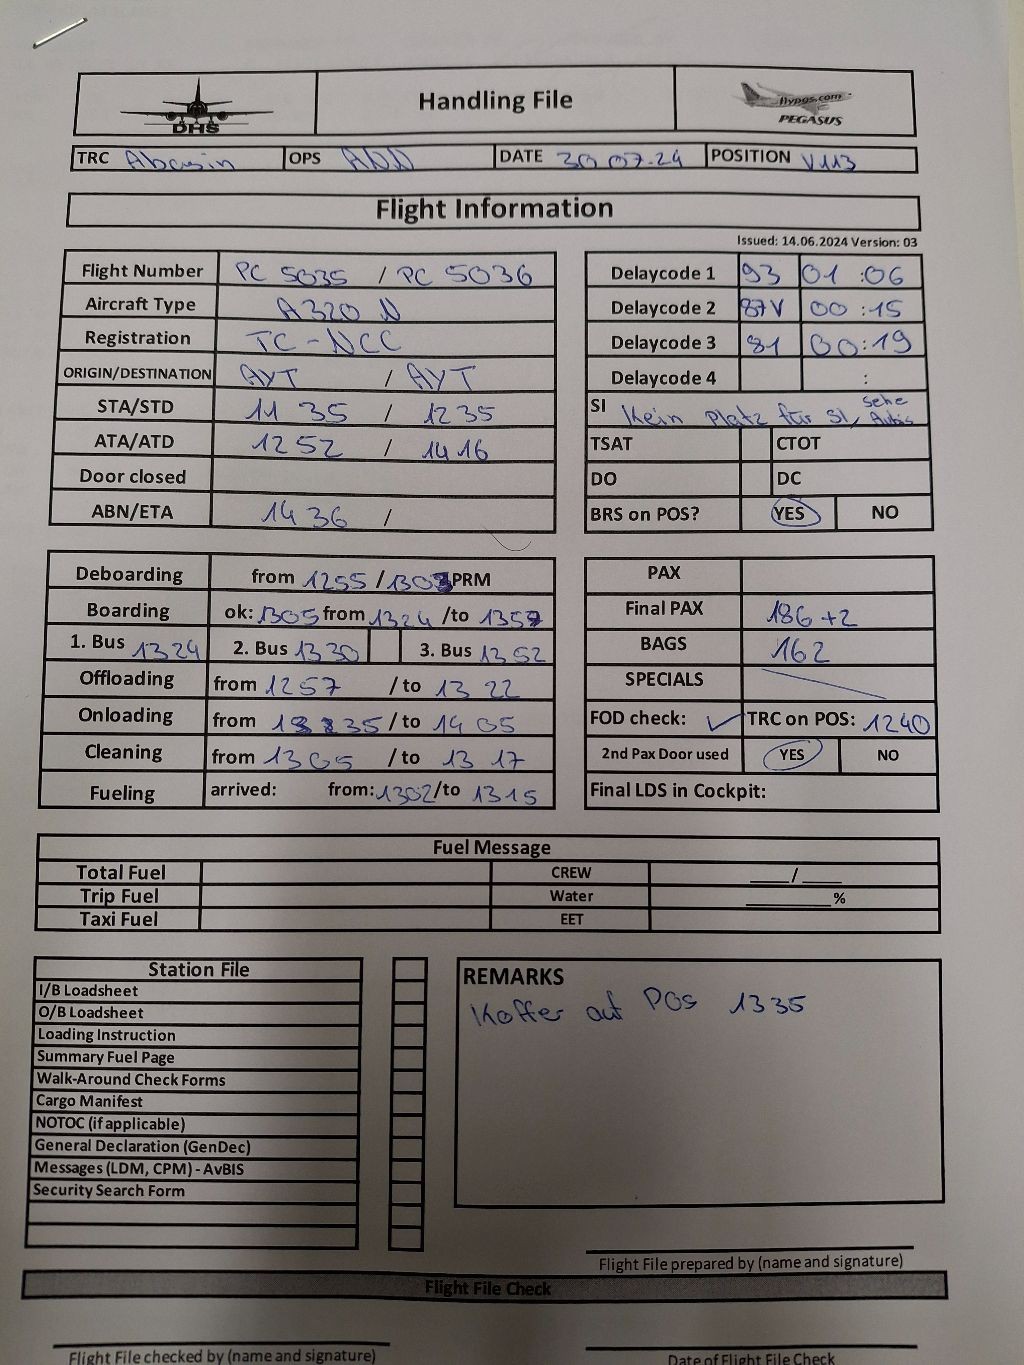 DHS
Handling File
flypgs.com
PEGASUS
TRC Abasin OPS DATE 30.07.24 POSITION V113
Flight Information
Issued: 14.06.2024 Version: 03
Flight Number PC 5035 / PC 5036
Aircraft Type A320 N
Registration TC-NCC
ORIGIN/DESTINATION AYT / AYT
STA/STD 11 35 / 12 35
ATA/ATD 12 52 / 14 16
Door closed
ABN/ETA 14 36 /
Delaycode 1 93 01 :06
Delaycode 2 87V 00 :15
Delaycode 3 81 00:19
Delaycode 4 :
SI Kein Platz für SI, sehe
TSAT CTOT
DO DC
BRS on POS? YES NO
Deboarding from 1255 / 1303 PRM
Boarding ok: 1305 from 1324 /to 1357
1. Bus 1324 2. Bus 1330 3. Bus 1352
Offloading from 1257 / to 13 22
Onloading from 1335 / to 1405
Cleaning from 1305 / to 13 17
Fueling arrived: from: 1302 /to 1315
PAX
Final PAX 186 +2
BAGS 162
SPECIALS
FOD check: ✓ TRC on POS: 1240
2nd Pax Door used YES NO
Final LDS in Cockpit:
Fuel Message
Total Fuel CREW ____/____
Trip Fuel Water ________%
Taxi Fuel EET
Station File
I/B Loadsheet
O/B Loadsheet
Loading Instruction
Summary Fuel Page
Walk-Around Check Forms
Cargo Manifest
NOTOC (if applicable)
General Declaration (GenDec)
Messages (LDM, CPM) - AvBIS
Security Search Form
REMARKS
Koffer auf Pos 1335
Flight File prepared by (name and signature)
Flight File Check
Flight File checked by (name and signature)
Date of Flight File Check